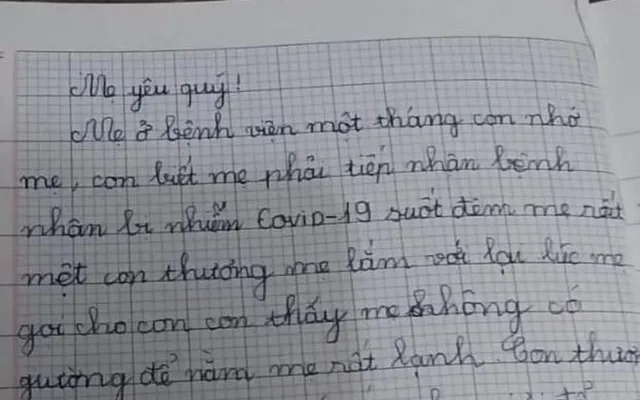 Mẹ yêu quý!
Mẹ ở bệnh viện một tháng con nhớ
mẹ, con biết mẹ phải tiếp nhân bệnh
nhân bị nhiễm Covid-19 suốt đêm mẹ rất
mệt con thương mẹ lắm với lại lúc mẹ
gọi cho con con thấy mẹ không có
gường để nằm mẹ rất lạnh. Con thươ